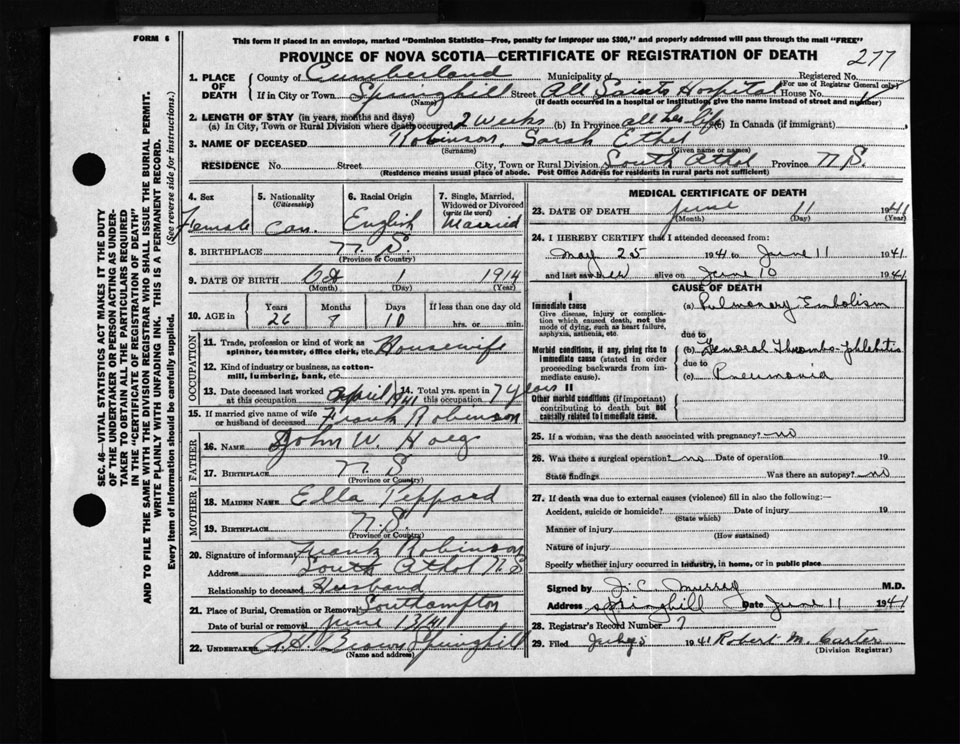 FORM 6
This form if placed in an envelope, marked "Dominion Statistics—Free, penalty for improper use $300," and properly addressed will pass through the mail "FREE"
PROVINCE OF NOVA SCOTIA—CERTIFICATE OF REGISTRATION OF DEATH
277
1. PLACE OF DEATH
County of Cumberland Municipality of Registered No.
(For use of Registrar General only)
If in City or Town Springhill Street All Saints Hospital House No.
(Name) (If death occurred in a hospital or institution, give the name instead of street and number)
2. LENGTH OF STAY (in years, months and days)
(a) In City, Town or Rural Division where death occurred 2 weeks (b) In Province all her life (c) In Canada (if immigrant)
3. NAME OF DECEASED Robinson, Sarah Ethel
(Surname) (Given name or names)
RESIDENCE No. Street City, Town or Rural Division South Athol Province N.S.
(Residence means usual place of abode. Post Office Address for residents in rural parts not sufficient)
4. Sex
Female
5. Nationality
(Citizenship)
Can.
6. Racial Origin
English
7. Single, Married, Widowed or Divorced
(write the word)
Married
8. BIRTHPLACE N.S.
(Province or Country)
9. DATE OF BIRTH Oct 1 1914
(Month) (Day) (Year)
10. AGE in
Years Months Days If less than one day old
26 8 10 hrs. or min.
OCCUPATION
11. Trade, profession or kind of work as spinner, teamster, office clerk, etc. Housewife
12. Kind of industry or business, as cotton-mill, lumbering, bank, etc.
13. Date deceased last worked at this occupation April 1941
14. Total yrs. spent in this occupation 7 years
15. If married give name of wife or husband of deceased Frank Robinson
FATHER
16. NAME John W. Hoeg
17. BIRTHPLACE N S
(Province or Country)
MOTHER
18. MAIDEN NAME Ella Teppard
19. BIRTHPLACE N.S.
(Province or Country)
20. Signature of informant Frank Robinson
Address South Athol N S
Relationship to deceased Husband
21. Place of Burial, Cremation or Removal Southampton
Date of burial or removal June 13/41
22. UNDERTAKER A.H. Brown Springhill
(Name and address)
MEDICAL CERTIFICATE OF DEATH
23. DATE OF DEATH June 11 1941
(Month) (Day) (Year)
24. I HEREBY CERTIFY that I attended deceased from
May 25 1941 to June 11 1941
and last saw her alive on June 10 1941
CAUSE OF DEATH
I
Immediate cause
Give disease, injury or complication which caused death, not the mode of dying, such as heart failure, asphyxia, asthenia, etc.
(a) Pulmonary Embolism
due to
Morbid conditions, if any, giving rise to immediate cause (stated in order proceeding backwards from immediate cause).
(b) Femoral Thrombo-phlebitis
due to
(c) Pneumonia
II
Other morbid conditions (if important) contributing to death but not causally related to immediate cause.
25. If a woman, was the death associated with pregnancy? no
26. Was there a surgical operation? no Date of operation 19
State findings Was there an autopsy? no
27. If death was due to external causes (violence) fill in also the following:—
Accident, suicide or homicide? Date of injury 19
(State which)
Manner of injury
(How sustained)
Nature of injury
Specify whether injury occurred in industry, in home, or in public place
Signed by Murray M.D.
Address Springhill Date June 11 1941
28. Registrar's Record Number 7
29. Filed July 5 1941 Robert M. Carter
(Division Registrar)
SEC. 46—VITAL STATISTICS ACT MAKES IT THE DUTY
OF THE UNDERTAKER OR PERSON ACTING AS UNDER-
TAKER TO OBTAIN ALL THE PARTICULARS REQUIRED
IN THE "CERTIFICATE OF REGISTRATION OF DEATH"
AND TO FILE THE SAME WITH THE DIVISION REGISTRAR WHO SHALL ISSUE THE BURIAL PERMIT.
WRITE PLAINLY WITH UNFADING INK. THIS IS A PERMANENT RECORD.
Every item of information should be carefully supplied. (See reverse side for instructions.)